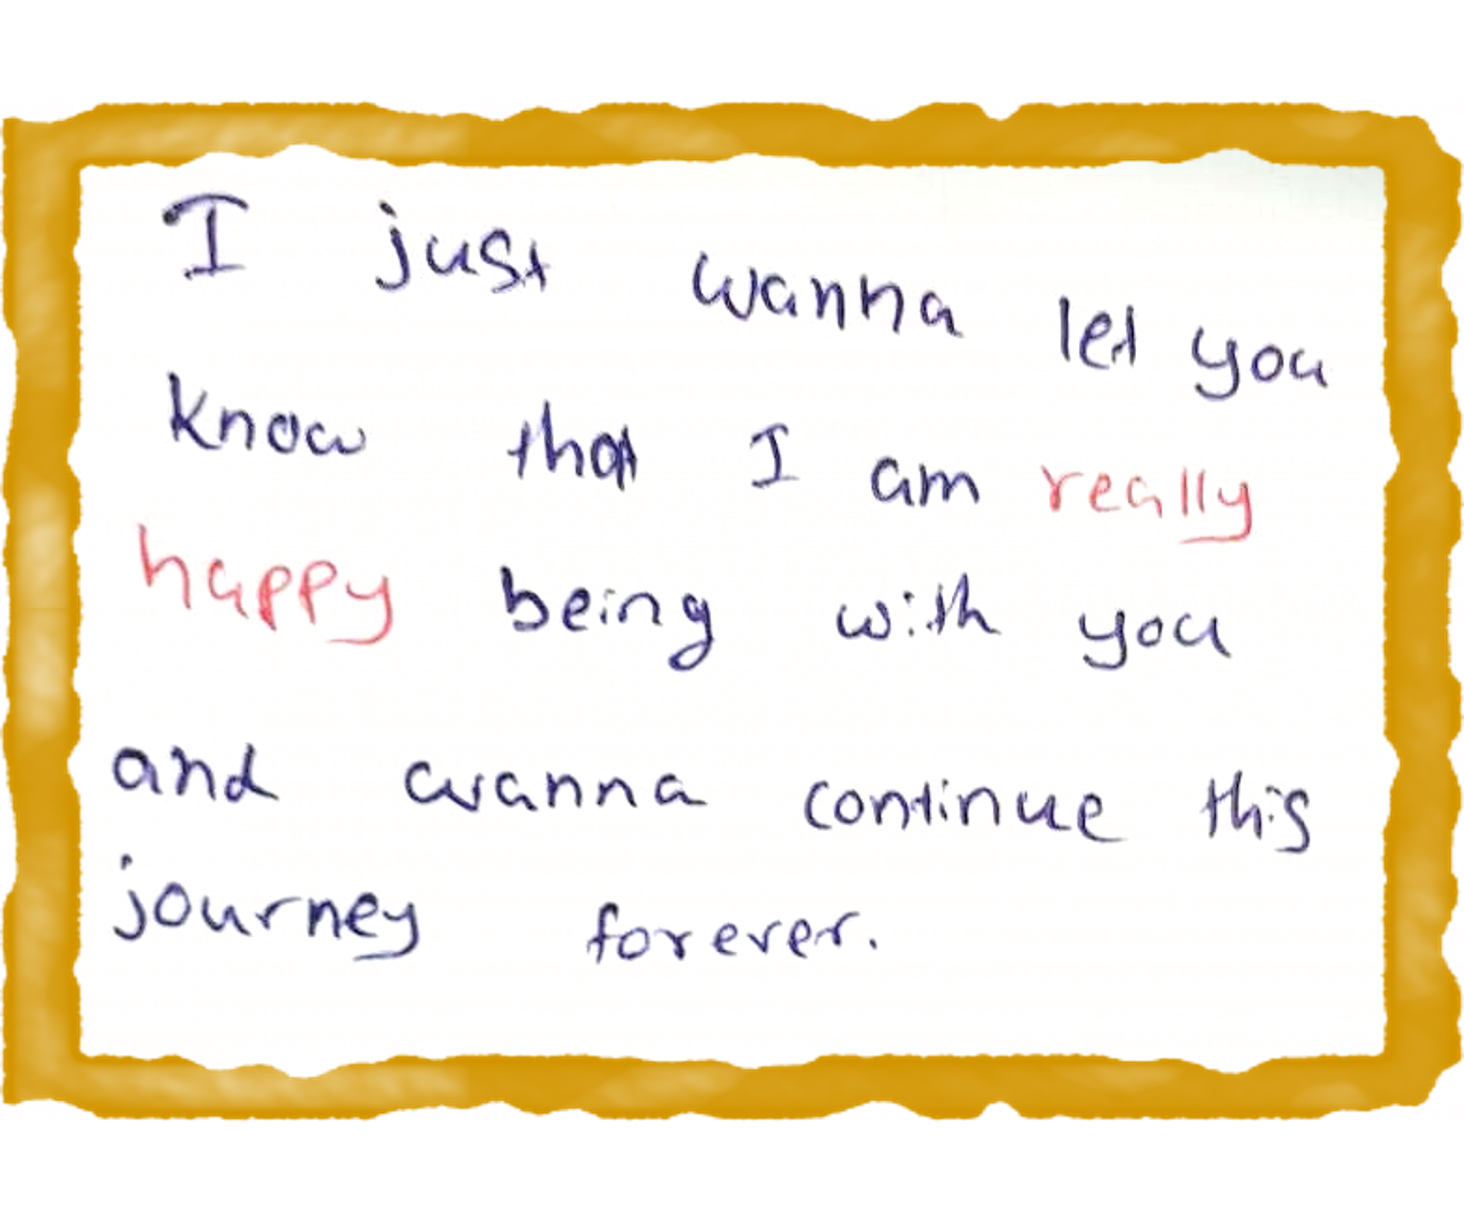 I just wanna let you
know that I am really
happy being with you
and wanna continue this
journey forever.